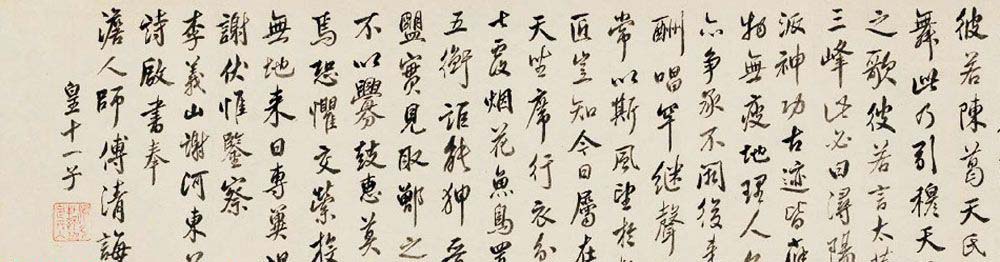 彼若陳葛天氏
舞此乃引穆天
之歌彼若言太
三峰此必曰潯陽
派神功古迹皆應
物無疲地理人
亦爭承不闕後来
酬唱罕継聲
常以斯風望於
匠豈知今日屬在
天坐席行衣分
七覆烟花魚鳥置
五衡詎能狎晉
盟實見取鄫之
不以釁鼓惠莫
焉恐懼交縈投
無地来日專冀謁
謝伏惟鑒察
李義山謝河東
詩啟書奉
澹人師傅清誨
皇十一子